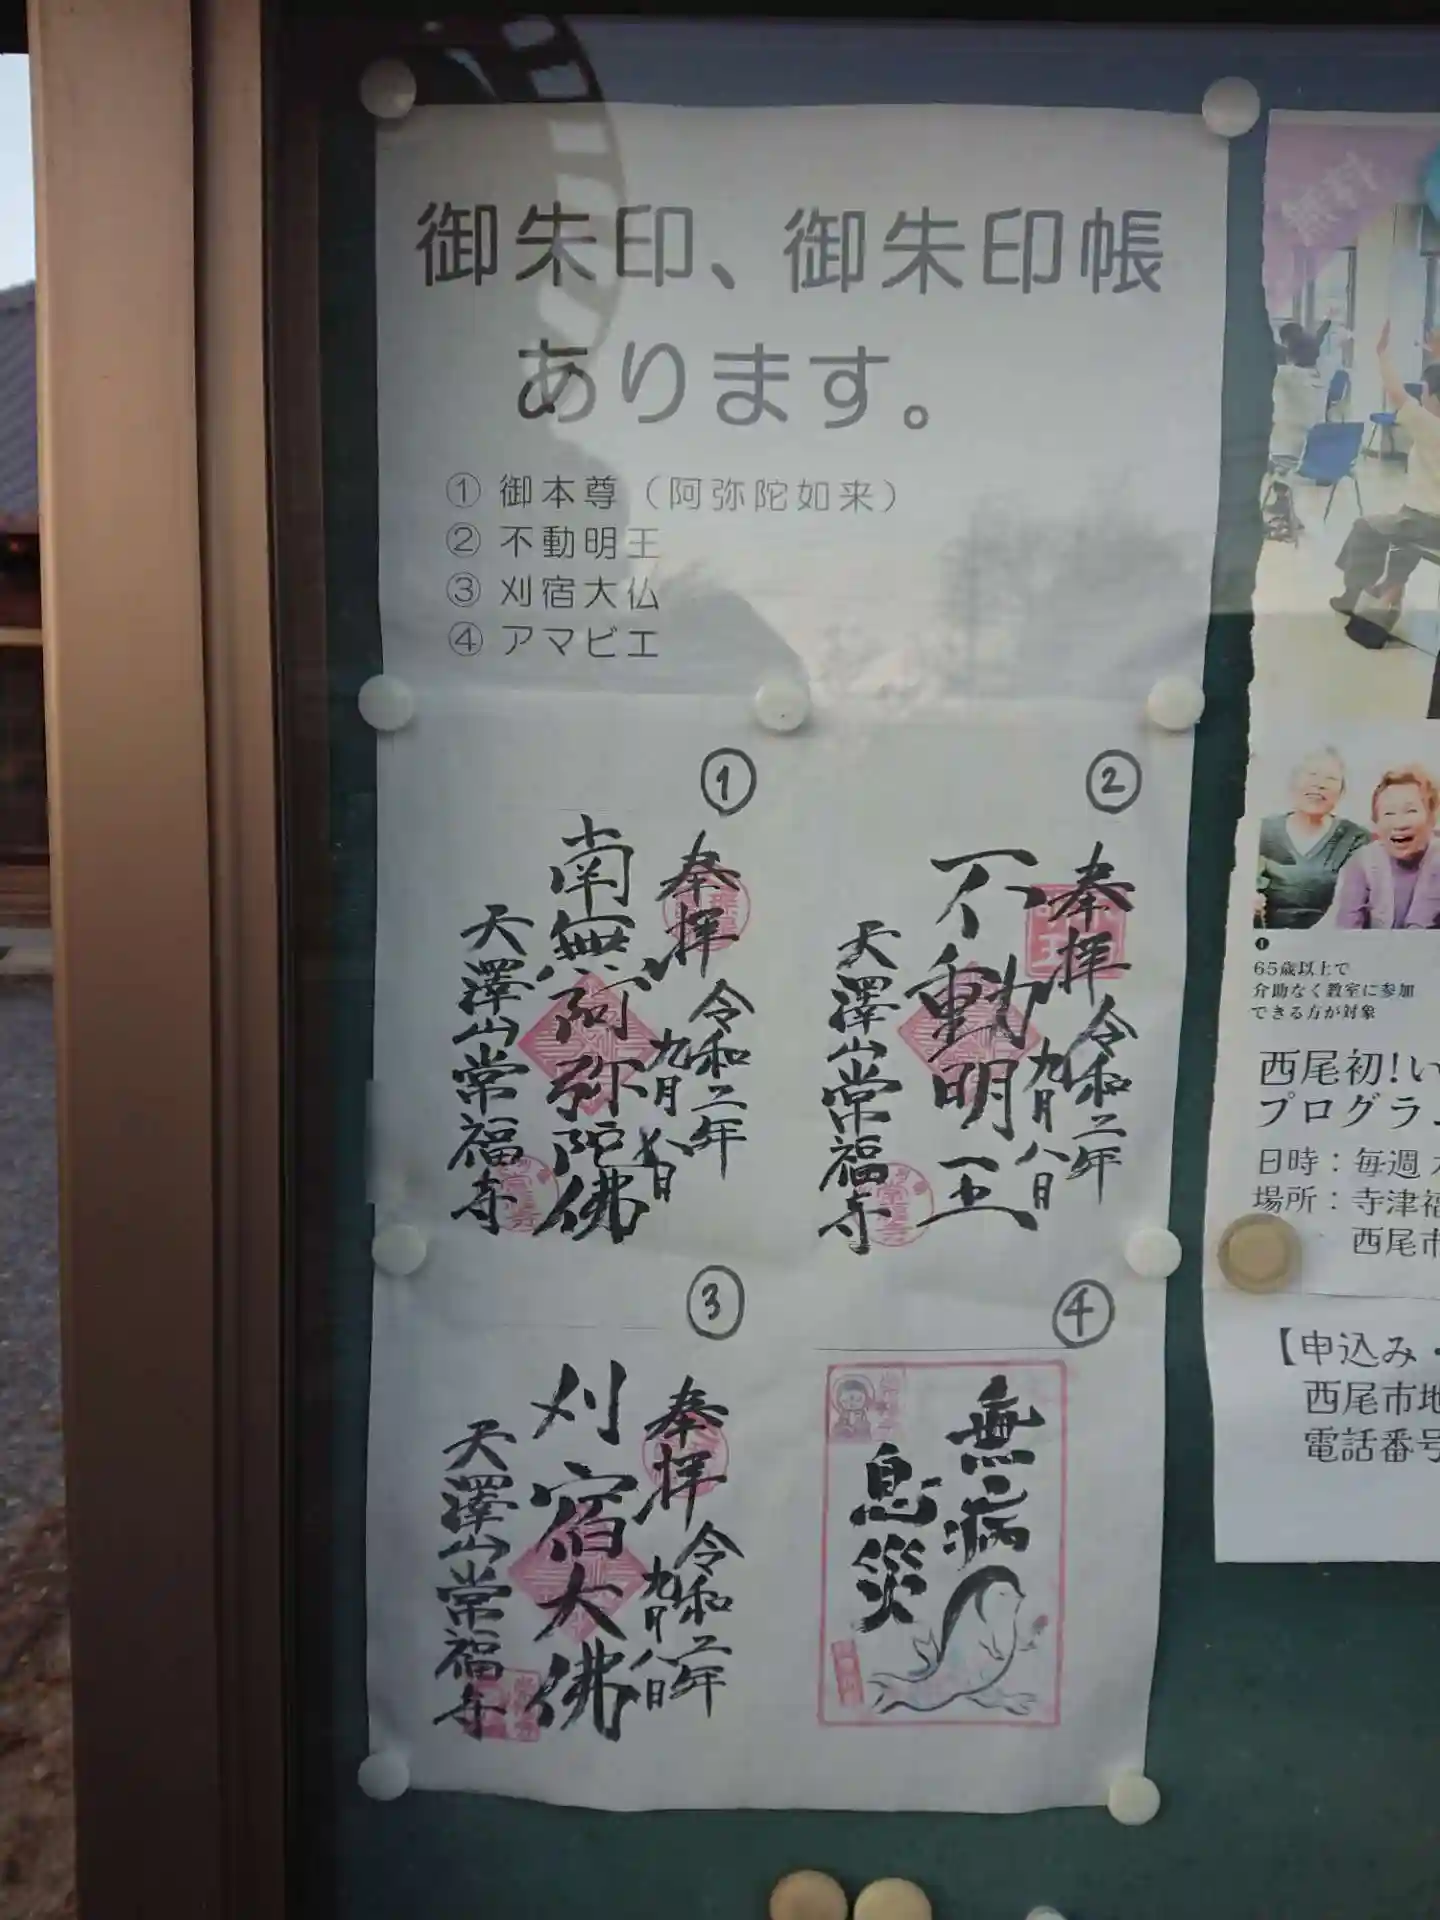 御朱印、御朱印帳
あります。
① 御本尊（阿弥陀如来）
② 不動明王
③ 刈宿大仏
④ アマビエ
①
奉拝
令和二年
九月八日
南無阿弥陀佛
天澤山常福寺
②
奉拝
令和二年
九月八日
不動明王
天澤山常福寺
③
奉拝
令和二年
九月八日
刈宿大佛
天澤山常福寺
④
無病
息災
無料
65歳以上で
介助なく教室に参加
できる方が対象
西尾初!い
プログラ
日時：毎週
場所：寺津福
西尾市
【申込み・
西尾市地
電話番号